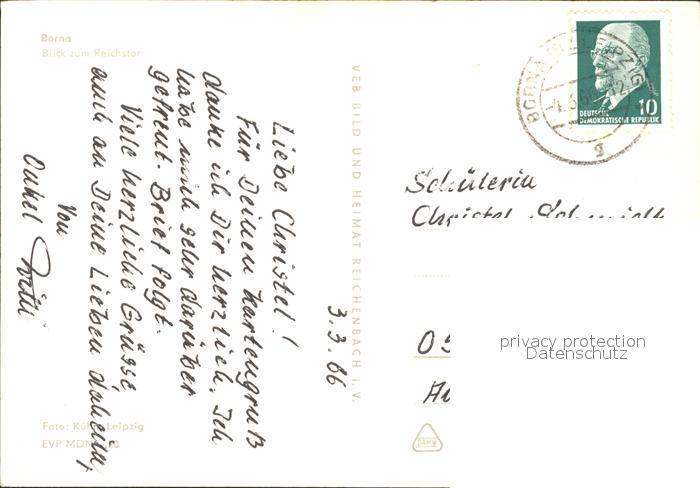 Borna
Blick zum Reichstor
3.3.66
Liebe Christel!
Für Deinen Kartengruß
danke ich Dir herzlich. Ich
habe mich sehr darüber
gefreut. Brief folgt.
Viele herzliche Grüsse
auch an Deine Lieben daheim,
Von
Onkel Willi
Foto: Kühn, Leipzig
EVP MDN
VEB BILD UND HEIMAT REICHENBACH i. V.
BORNA (BZ LEIPZIG)
g
10
DEUTSCHE
DEMOKRATISCHE REPUBLIK
Schülerin
Christel Schmidt
privacy protection
Datenschutz